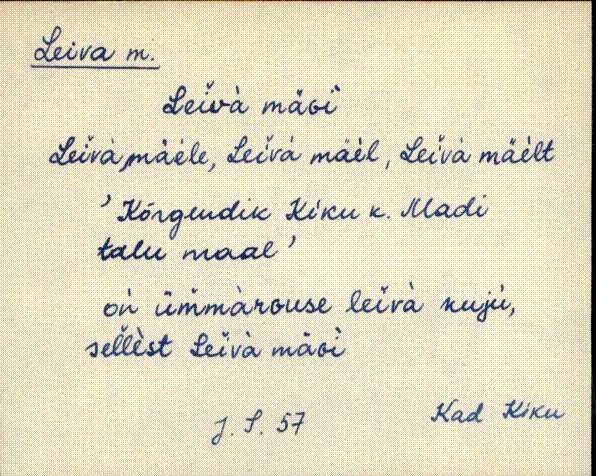 Leiva m.
Leĭvà mäǝi̇̀
Leĭvà mäèle, Leĭvà mäèl, Leĭvà mäèlt
' Kõrgendik Kiku k. Madi
talu maal '
oǹ üm̆màrǝuse leĭvà kujù,
sel̆lèst Leĭvà mäǝi̇̀
J. S. 57
Kad Kiku